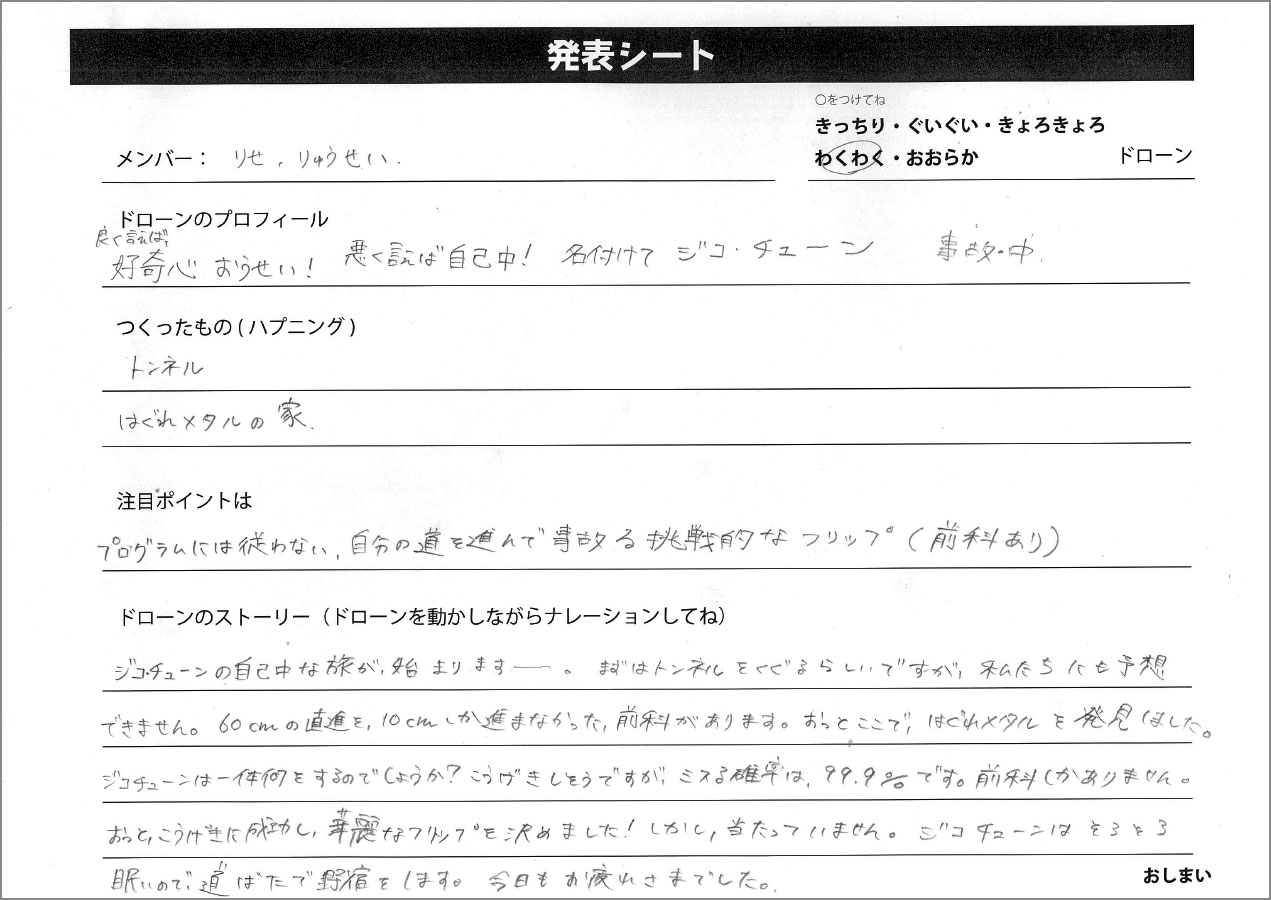 発表シート
○をつけてね
きっちり・ぐいぐい・きょろきょろ
メンバー： りせ、りゅうせい.
わくわく・おおらか ドローン
ドローンのプロフィール
良く言えば、
好奇心 おうせい! 悪く言えば自己中! 名付けて ジコ・チューン 事故・中.
つくったもの(ハプニング)
トンネル
はぐれメタルの家.
注目ポイントは
プログラムには従わない、自分の道を進んで事故る挑戦的なフリップ(前科あり)
ドローンのストーリー（ドローンを動かしながらナレーションしてね）
ジコ・チューンの自己中な旅が、始まります――。まずはトンネルをくぐるらしいですが、私たちにも予想
できません。60cmの直進を、10cmしか進まなかった、前科があります。おっとここで、はぐれメタルを発見しました。
ジコチューンは一体何をするのでしょうか?こうげきしそうですが、ミスる確率は、99.9%です。前科しかありません。
おっと、こうげきに成功し、華麗なフリップを決めました!しかし、当たっていません。ジコチューンはそろそろ
眠いので、道ばたで野宿をします。今日もお疲れさまでした。
おしまい